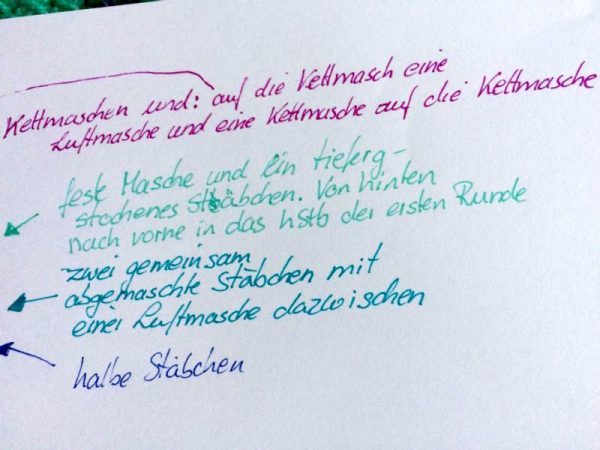 Kettmaschen und: auf die Kettmasch eine
Luftmasche und eine Kettmasche auf die Kettmasche
feste Masche und ein tieferg-
stochenes Stäbchen. Von hinten
nach vorne in das hstb der ersten Runde
zwei gemeinsam
abgemaschte Stäbchen mit
einer Luftmasche dazwischen
halbe Stäbchen